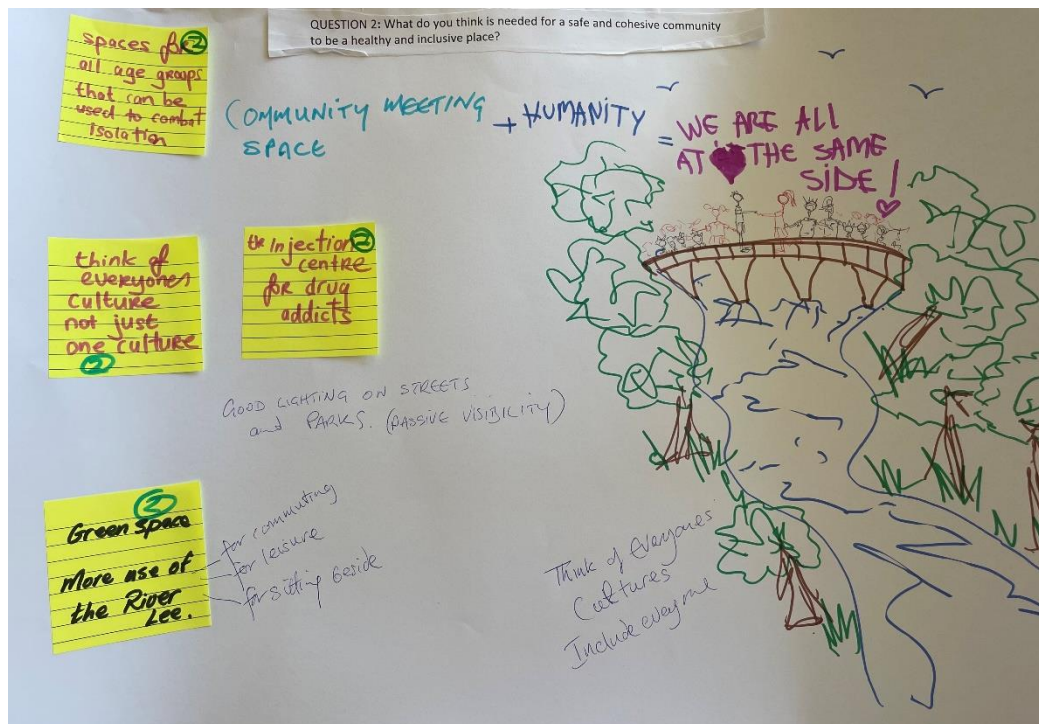 QUESTION 2: What do you think is needed for a safe and cohesive community
to be a healthy and inclusive place?
spaces for 2
all age groups
that can be
used to combat
isolation
COMMUNITY MEETING
SPACE
+ HUMANITY
= WE ARE ALL
AT THE SAME
SIDE!
think of
everyones
culture
not just
one culture
2
the Injection 2
centre
for drug
addicts
GOOD LIGHTING ON STREETS
and PARKS. (PASSIVE VISIBILITY)
2
Green space
More use of
the River
Lee.
for commuting
for leisure
for sitting beside
Think of Everyones
Cultures
Include everyone